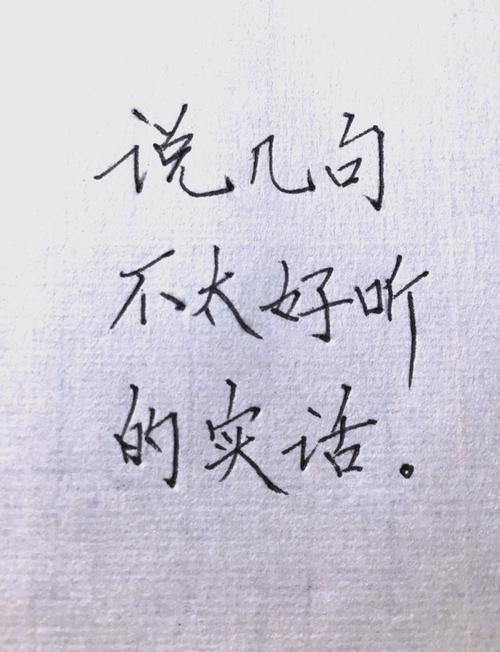 说几句
不太好听
的实话。